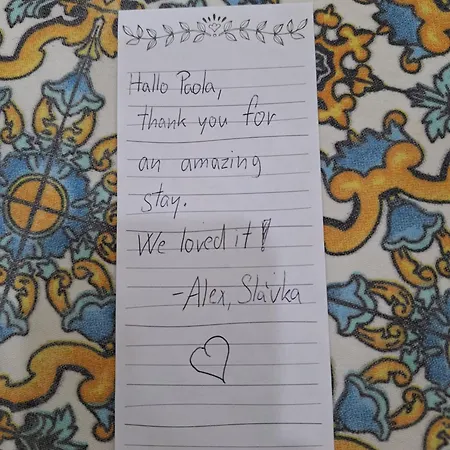 Hallo Paola,
thank you for
an amazing
stay.
We loved it!
-Alex, Slávka